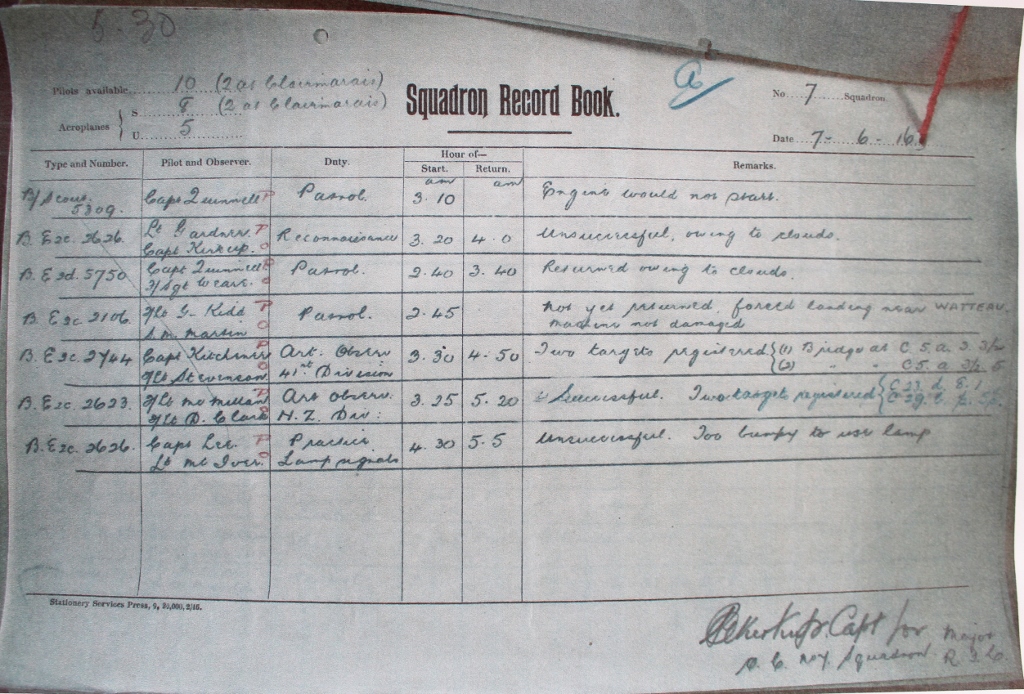 5.30
Pilots available 10 (2 at Clairmarais)
Aeroplanes { S. 8 (2 at Clairmarais)
U. 5
Squadron Record Book.
No. 7 Squadron
Date 7-6-16.
Type and Number. Pilot and Observer. Duty. Hour of— Start. Return. Remarks.
am am
B/Scout 5309. Capt Quinnell P Patrol. 3.10 Engine would not start.
B.E2c. 2626. Lt Gardner. P Reconnaissance 3.20 4.0 Unsuccessful, owing to clouds.
Capt Kirkup. O
B.E2d. 5750 Capt Quinnell P Patrol. 2.40 3.40 Returned owing to clouds.
F/Sgt Weare. O
B.E2c 2106. 2/Lt G. Kidd P Patrol. 2.45 Not yet returned, forced landing near WATTEAU.
A.M. Martin O Machine not damaged
B.E2c. 2744 Capt Kitchener P Art. Observn 3.30 4.50 Two targets registered {(1) Bridge at C.5.a.3.3½
2/Lt Stevenson O 41st Division (2) " " C5.a.3½.5
B.E2c. 2623. 2/Lt McMillan P Art Observn. 3.25 5.20 Successful. Two targets registered {C.23.d.8.1
2/Lt D. Clark O N.Z. Div:
B.E2c. 2626. Capt Lee. P Practice 4.30 5.5 Unsuccessful. Too bumpy to use lamp
Lt McIver. O Lamp signals
Stationery Services Press, 9, 20,000, 2/16.
Kirkup. Capt for Major
O.C. No 7 Squadron R.F.C.